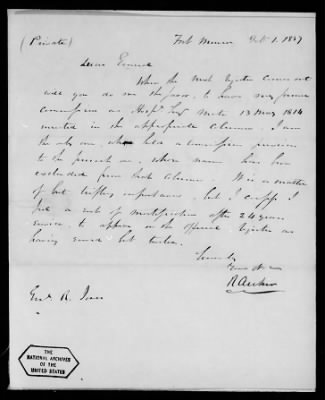 (Private)
Fort Monroe Oct. 1. 1837
Dear General
When the next Register comes out
will you do me the favor, to have my former
commission as Hosp. Sur. Mate 13 May 1814
inserted in the appropriate Column. I am
the only one, who held a commission previous
to the present one, whose name has been
excluded from that Column. It is a matter
of but trifling importance, but I confess I
feel a sort of mortification after 24 years
service, to appear on the official Register as
having served but twelve.
Genl. R. Jones
THE
NATIONAL ARCHIVES
OF THE
UNITED STATES